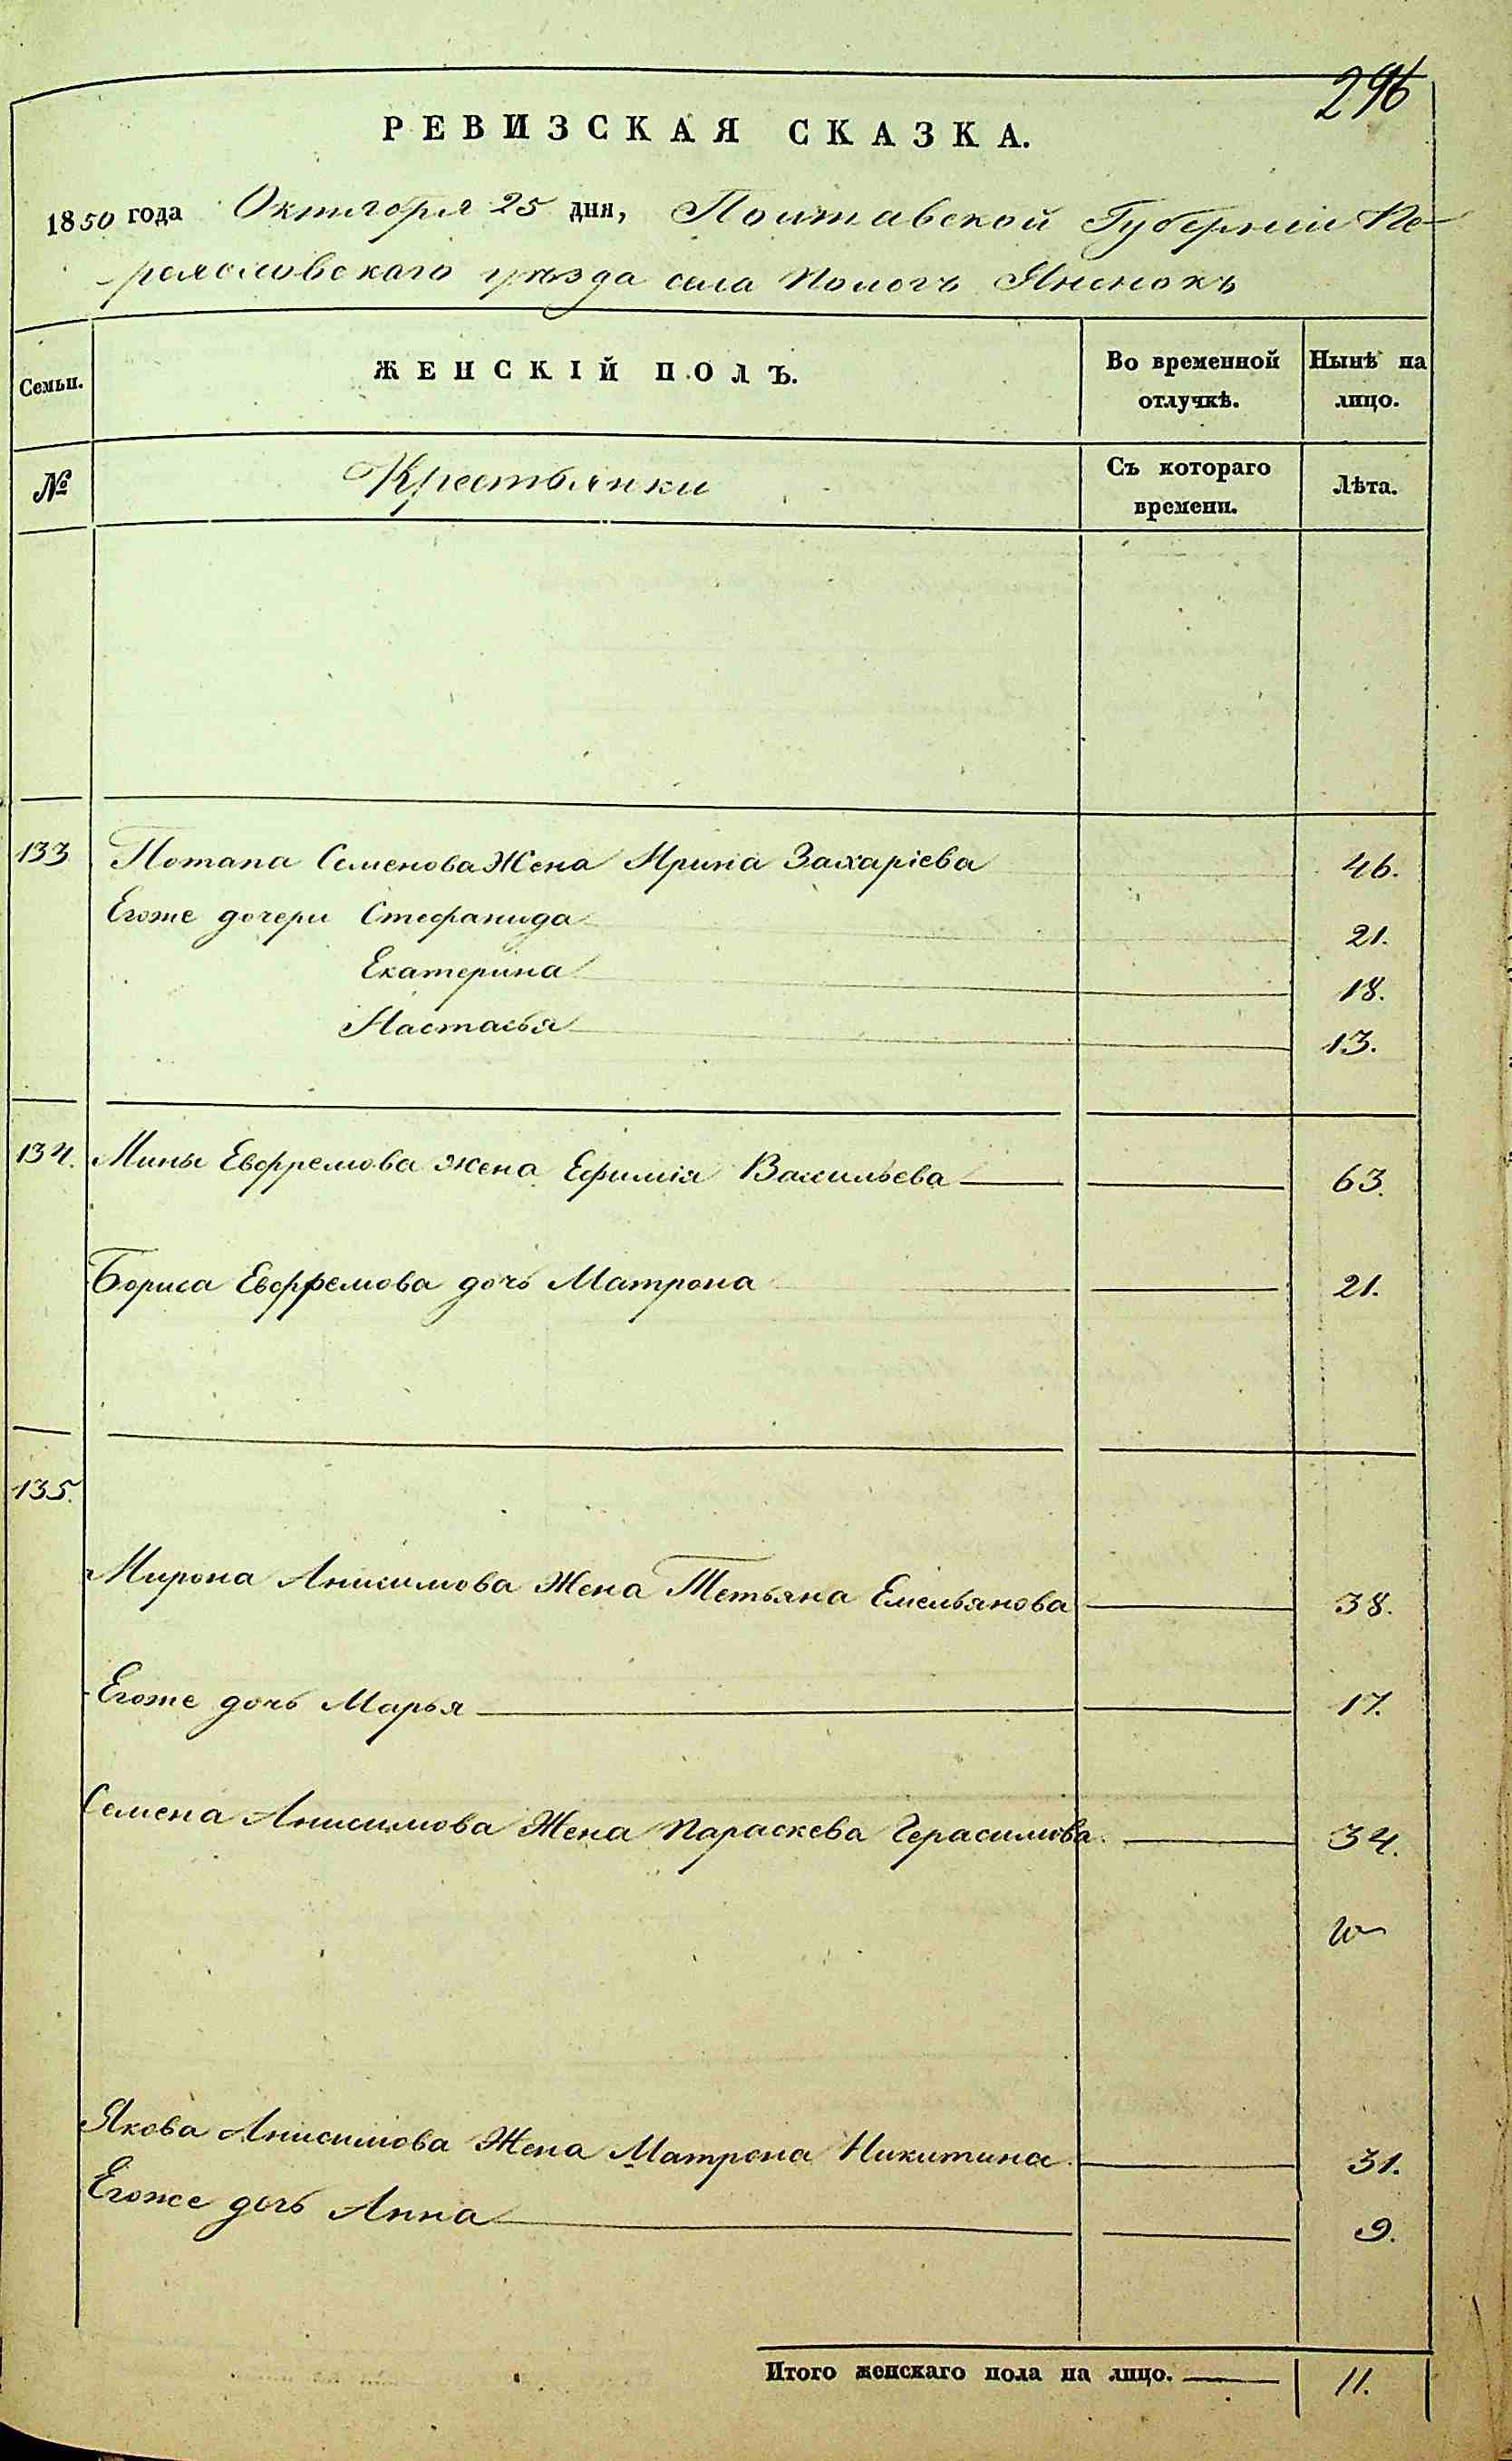 296
РЕВИЗСКАЯ СКАЗКА.
1850 года Октября 25 дня, Полтавской Губернии Пе-
реяславскаго уѣзда села Пологъ Яненокъ
Семьи. ЖЕНСКІЙ ПОЛЪ. Во временной отлучкѣ. Нынѣ на лицо.
№ Крестьянки Съ котораго времени. Лѣта.
133 Потапа Семенова Жена Ирина Захаріева 46.
Егоже дочери Стефанида 21.
Екатерина 18.
Настасья 13.
134. Мины Евфремова жена Ефимія Васильева 63.
Бориса Евфремова дочь Матрона 21.
135.
Мирона Анисимова Жена Тетьяна Емельянова 38.
Егоже дочь Марья 17.
Семена Анисимова Жена Параскева Герасимова. 34.
Якова Анисимова Жена Матрона Никитина. 31.
Егоже дочь Анна 9.
Итого женскаго пола на лицо. 11.